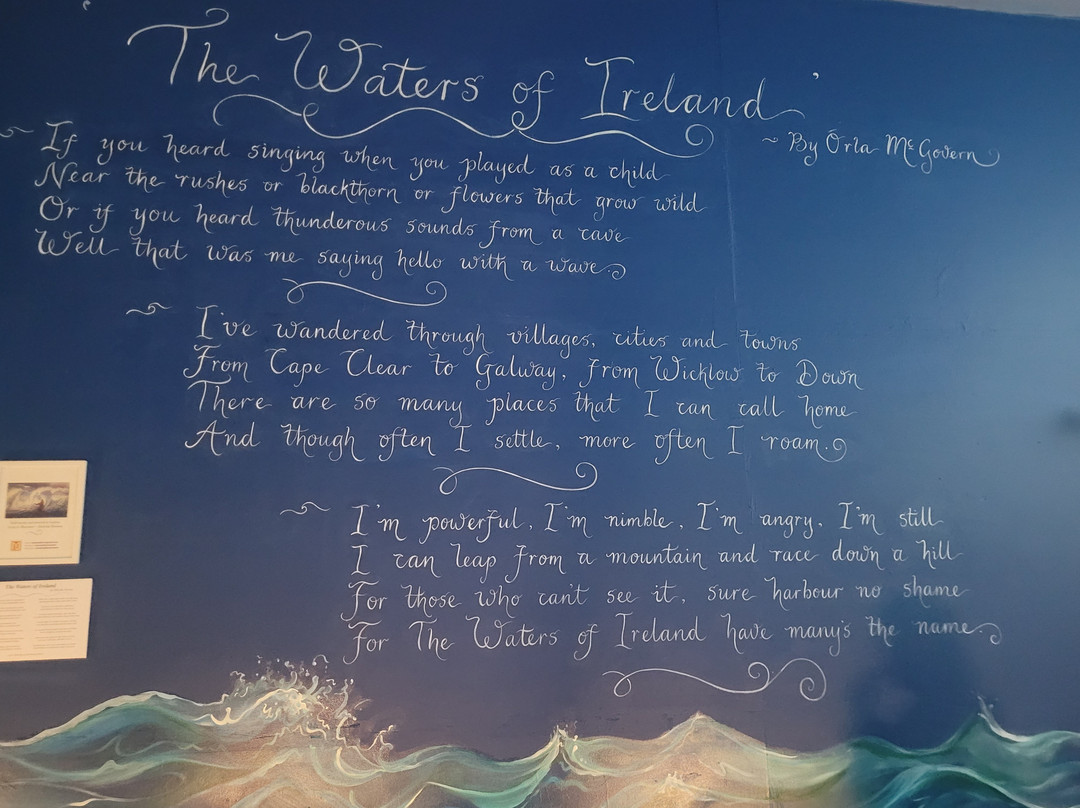 The Waters of Ireland
~ By Órla McGovern
If you heard singing when you played as a child
Near the rushes or blackthorn or flowers that grow wild
Or if you heard thunderous sounds from a cave
Well that was me saying hello with a wave.
I've wandered through villages, cities and towns
From Cape Clear to Galway, from Wicklow to Down
There are so many places that I can call home
And though often I settle, more often I roam.
I'm powerful, I'm nimble, I'm angry, I'm still
I can leap from a mountain and race down a hill
For those who can't see it, sure harbour no shame
For The Waters of Ireland have many's the name.
The Waters of Ireland